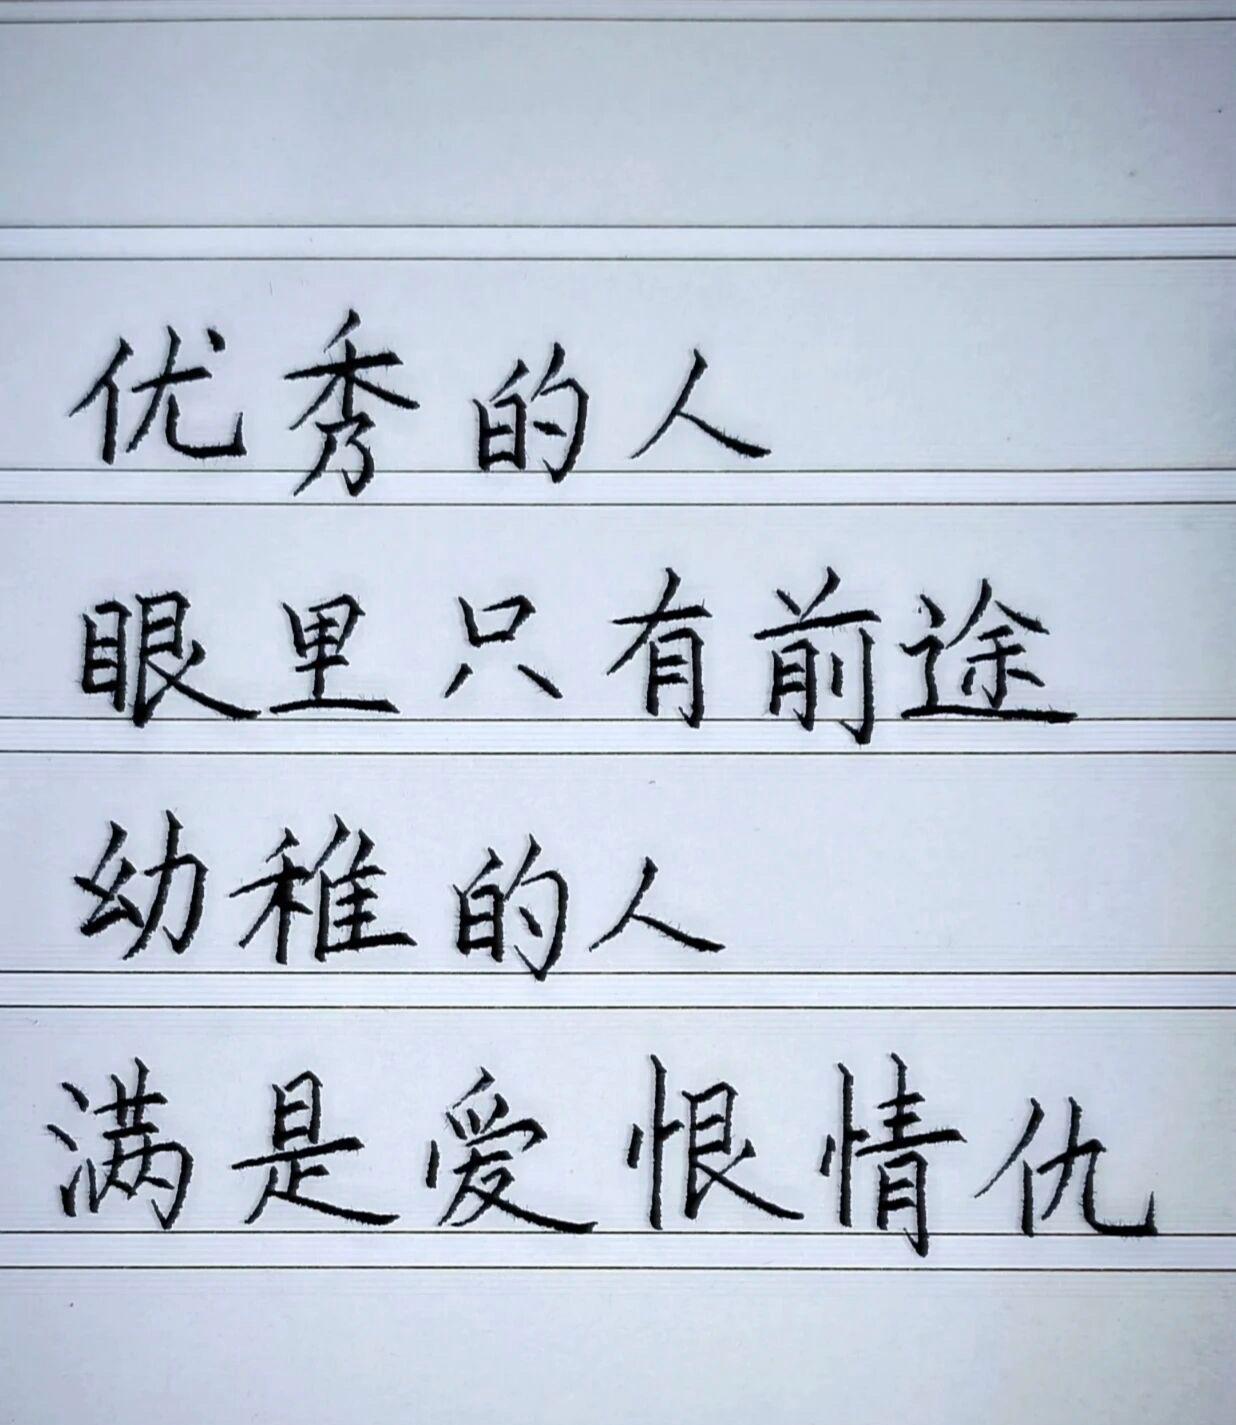 优秀的人
眼里只有前途
幼稚的人
满是爱恨情仇